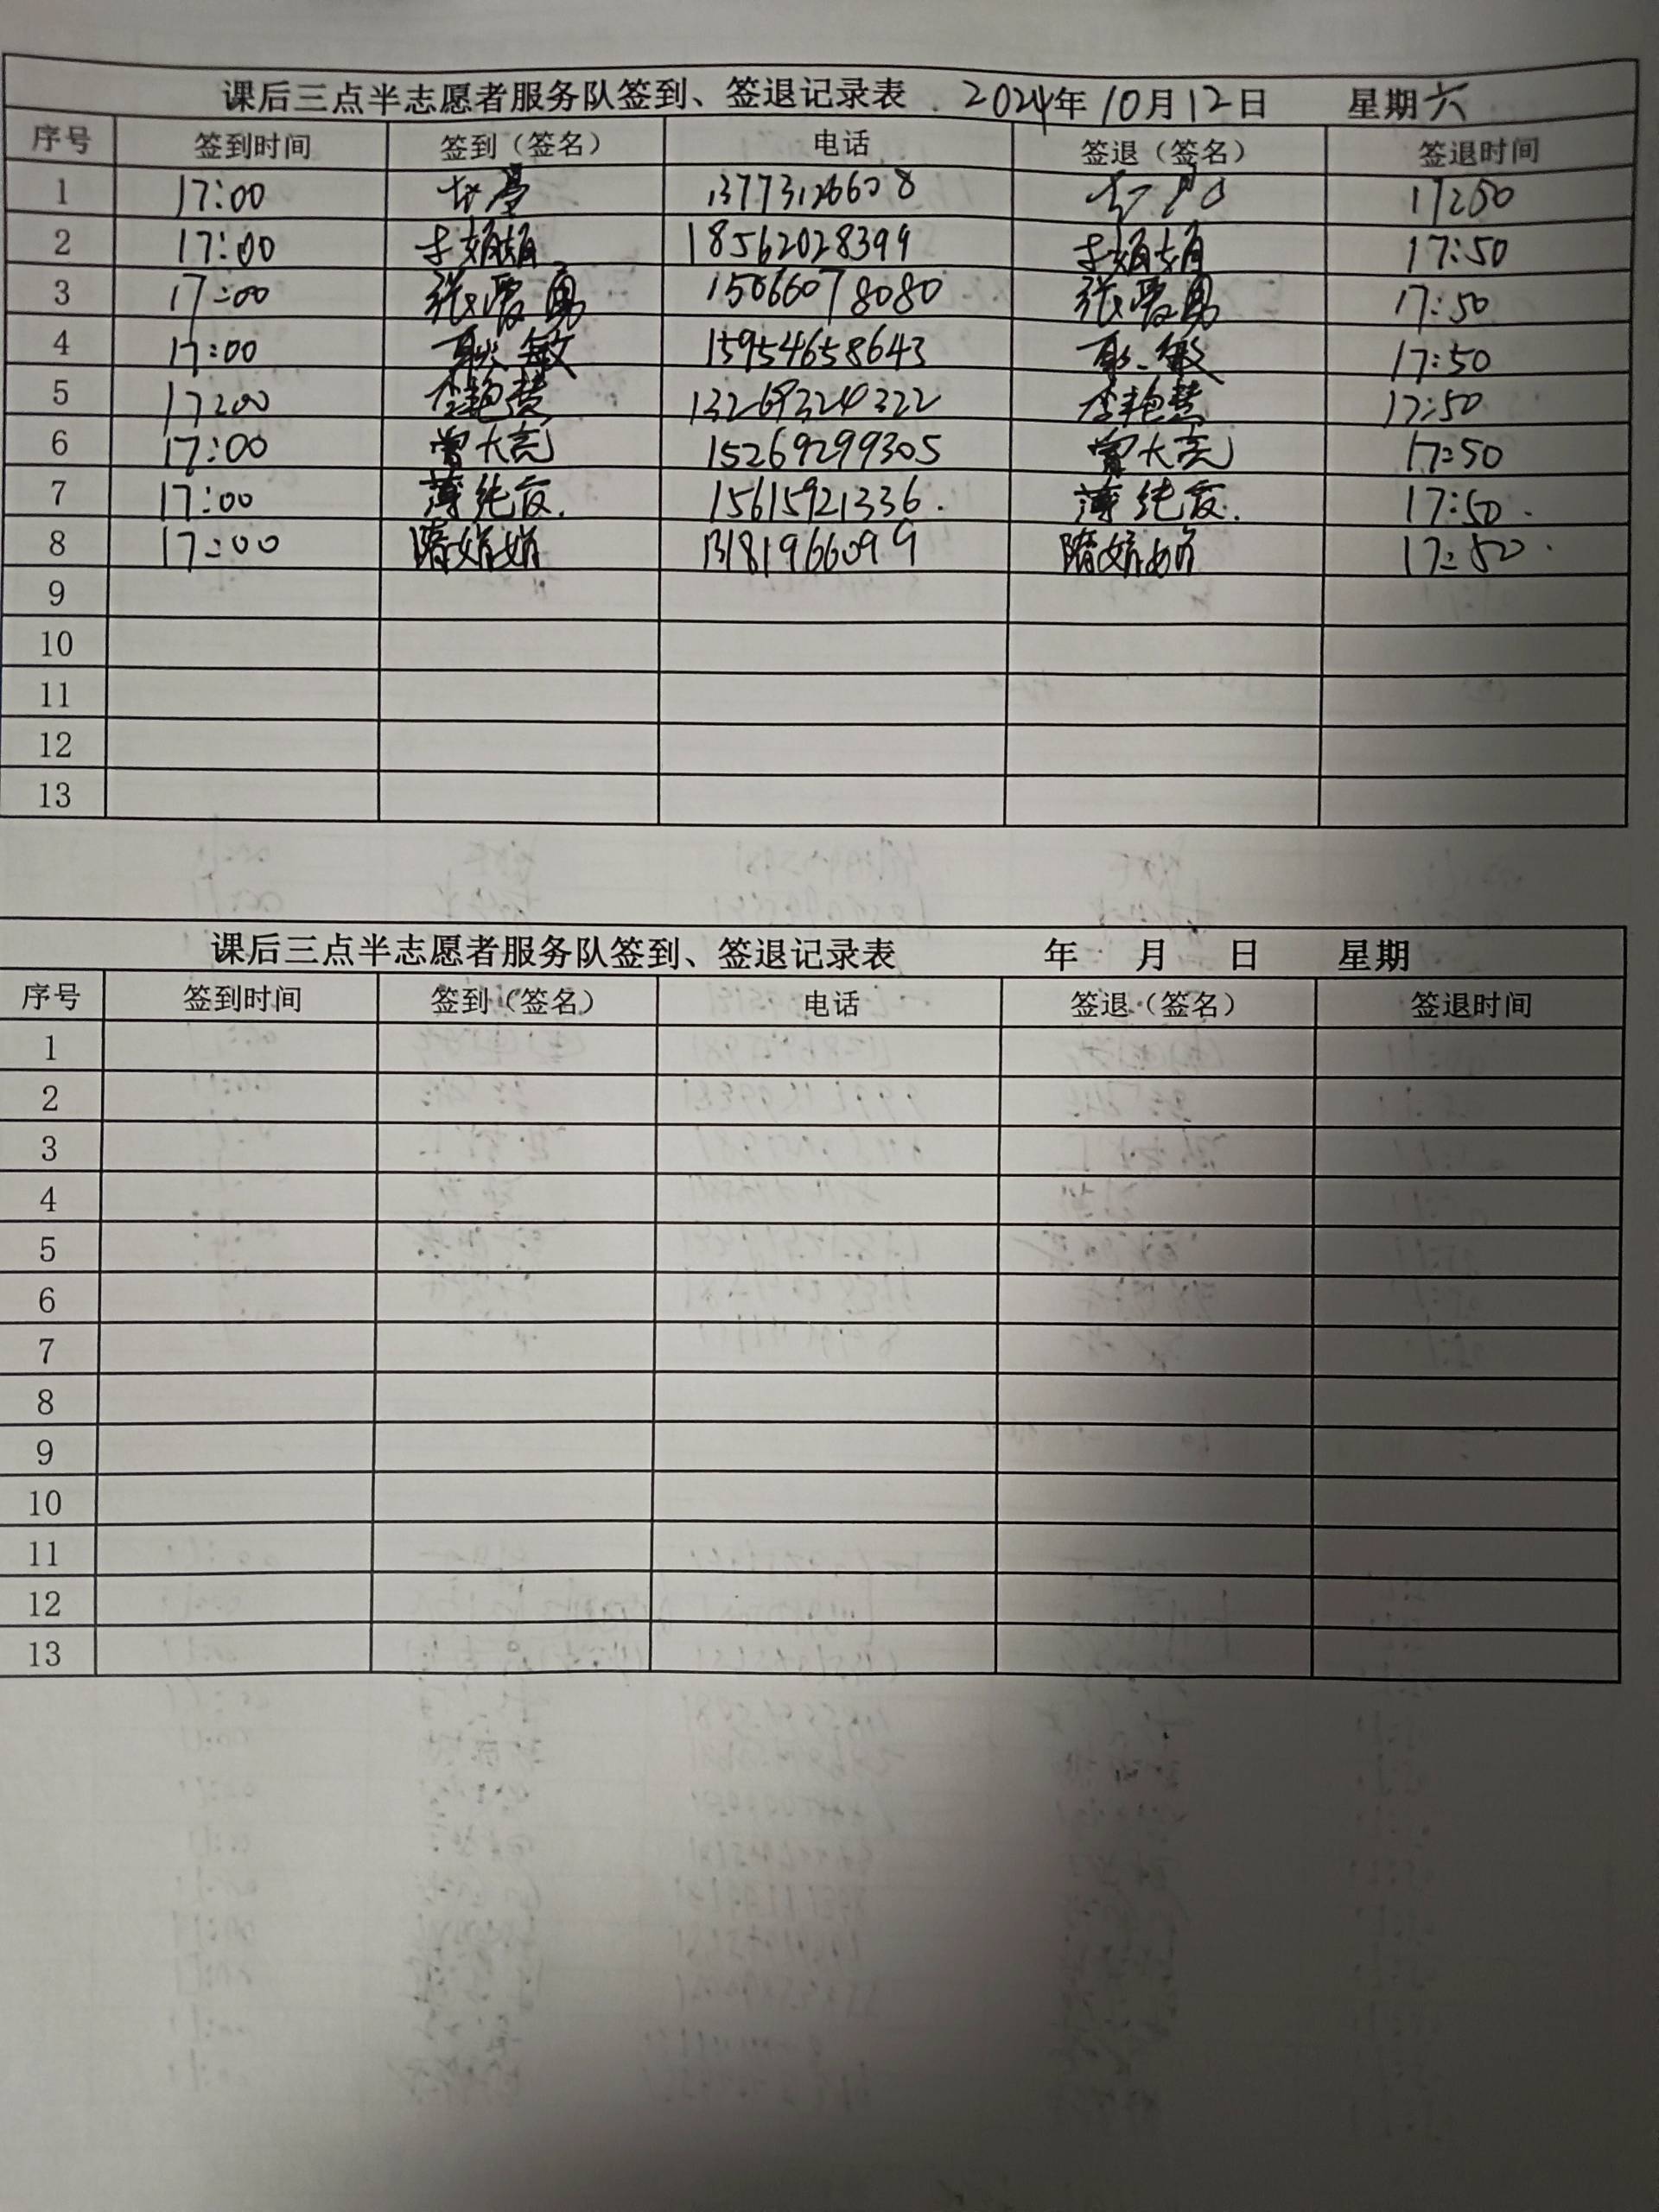 课后三点半志愿者服务队签到、签退记录表 2024年10月12日 星期六
序号 签到时间 签到（签名） 电话 签退（签名） 签退时间
1 17:00 13773126608 17:50
2 17:00 李娟娟 18562028399 李娟娟 17:50
3 17:00 张爱勇 15066078080 张爱勇 17:50
4 17:00 耿敏 15954658643 耿敏 17:50
5 17:00 李艳慧 13269324322 李艳慧 17:50
6 17:00 曾大亮 15269299305 曾大亮 17:50
7 17:00 薄纯友. 15615921336. 薄纯友. 17:50.
8 17:00 隋娟娟 13181966099 隋娟娟 17:50.
9
10
11
12
13
课后三点半志愿者服务队签到、签退记录表 年 月 日 星期
序号 签到时间 签到（签名） 电话 签退（签名） 签退时间
1
2
3
4
5
6
7
8
9
10
11
12
13